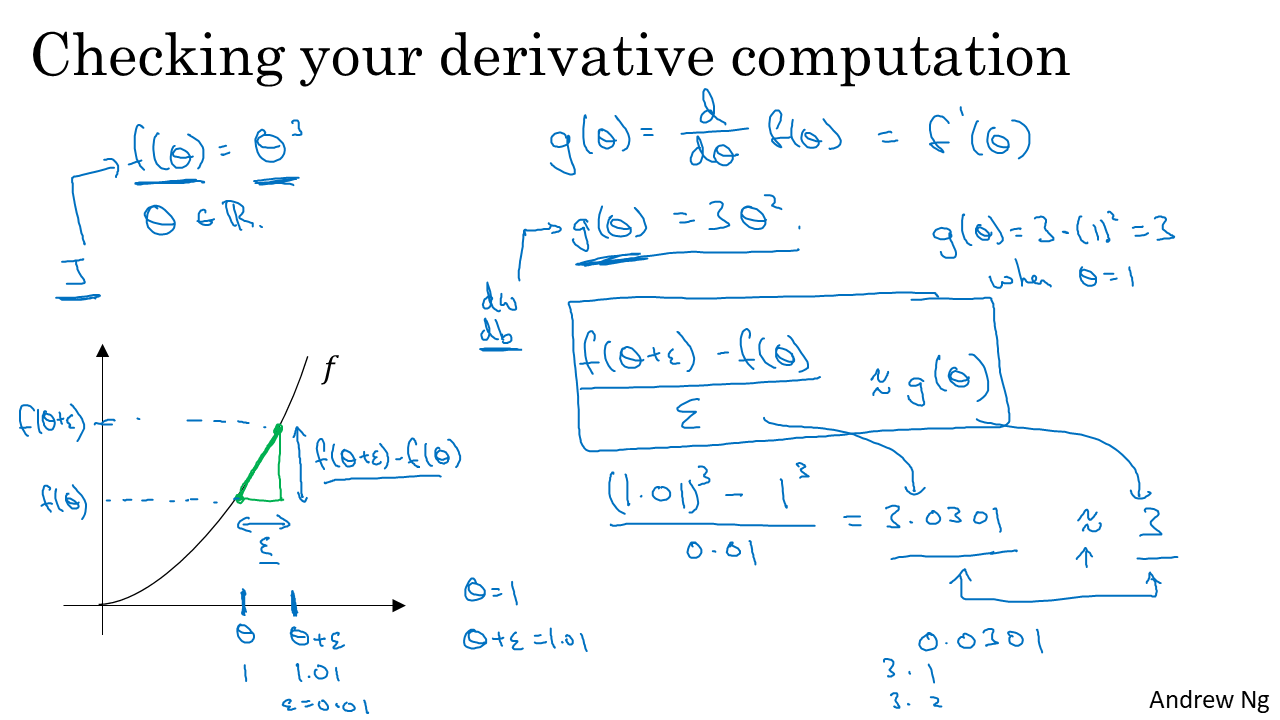 Checking your derivative computation
f(θ) = θ³
θ ∈ ℝ.
J
g(θ) = d/dθ f(θ) = f'(θ)
g(θ) = 3θ².
g(θ) = 3·(1)² = 3
when θ=1
dw
db
(f(θ+ε) - f(θ))/ε ≈ g(θ)
((1.01)³ - 1³)/0.01 = 3.0301 ≈ 3
0.0301
3.1
3.2
f
f(θ+ε)
f(θ)
f(θ+ε)-f(θ)
ε
θ θ+ε
1 1.01
ε=0.01
θ=1
θ+ε=1.01
Andrew Ng